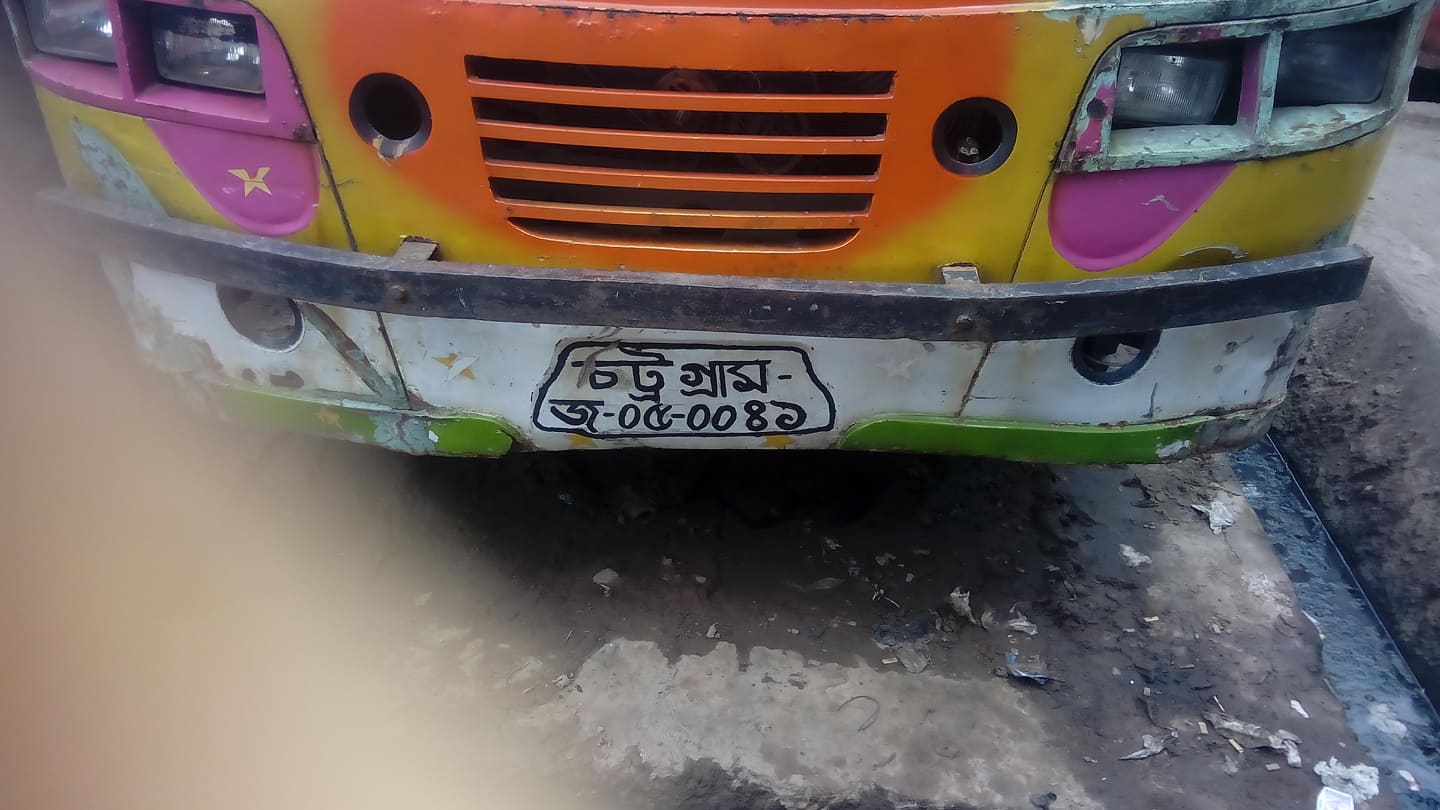 -চট্ট গ্রাম-
জ-০৫-০০৪১